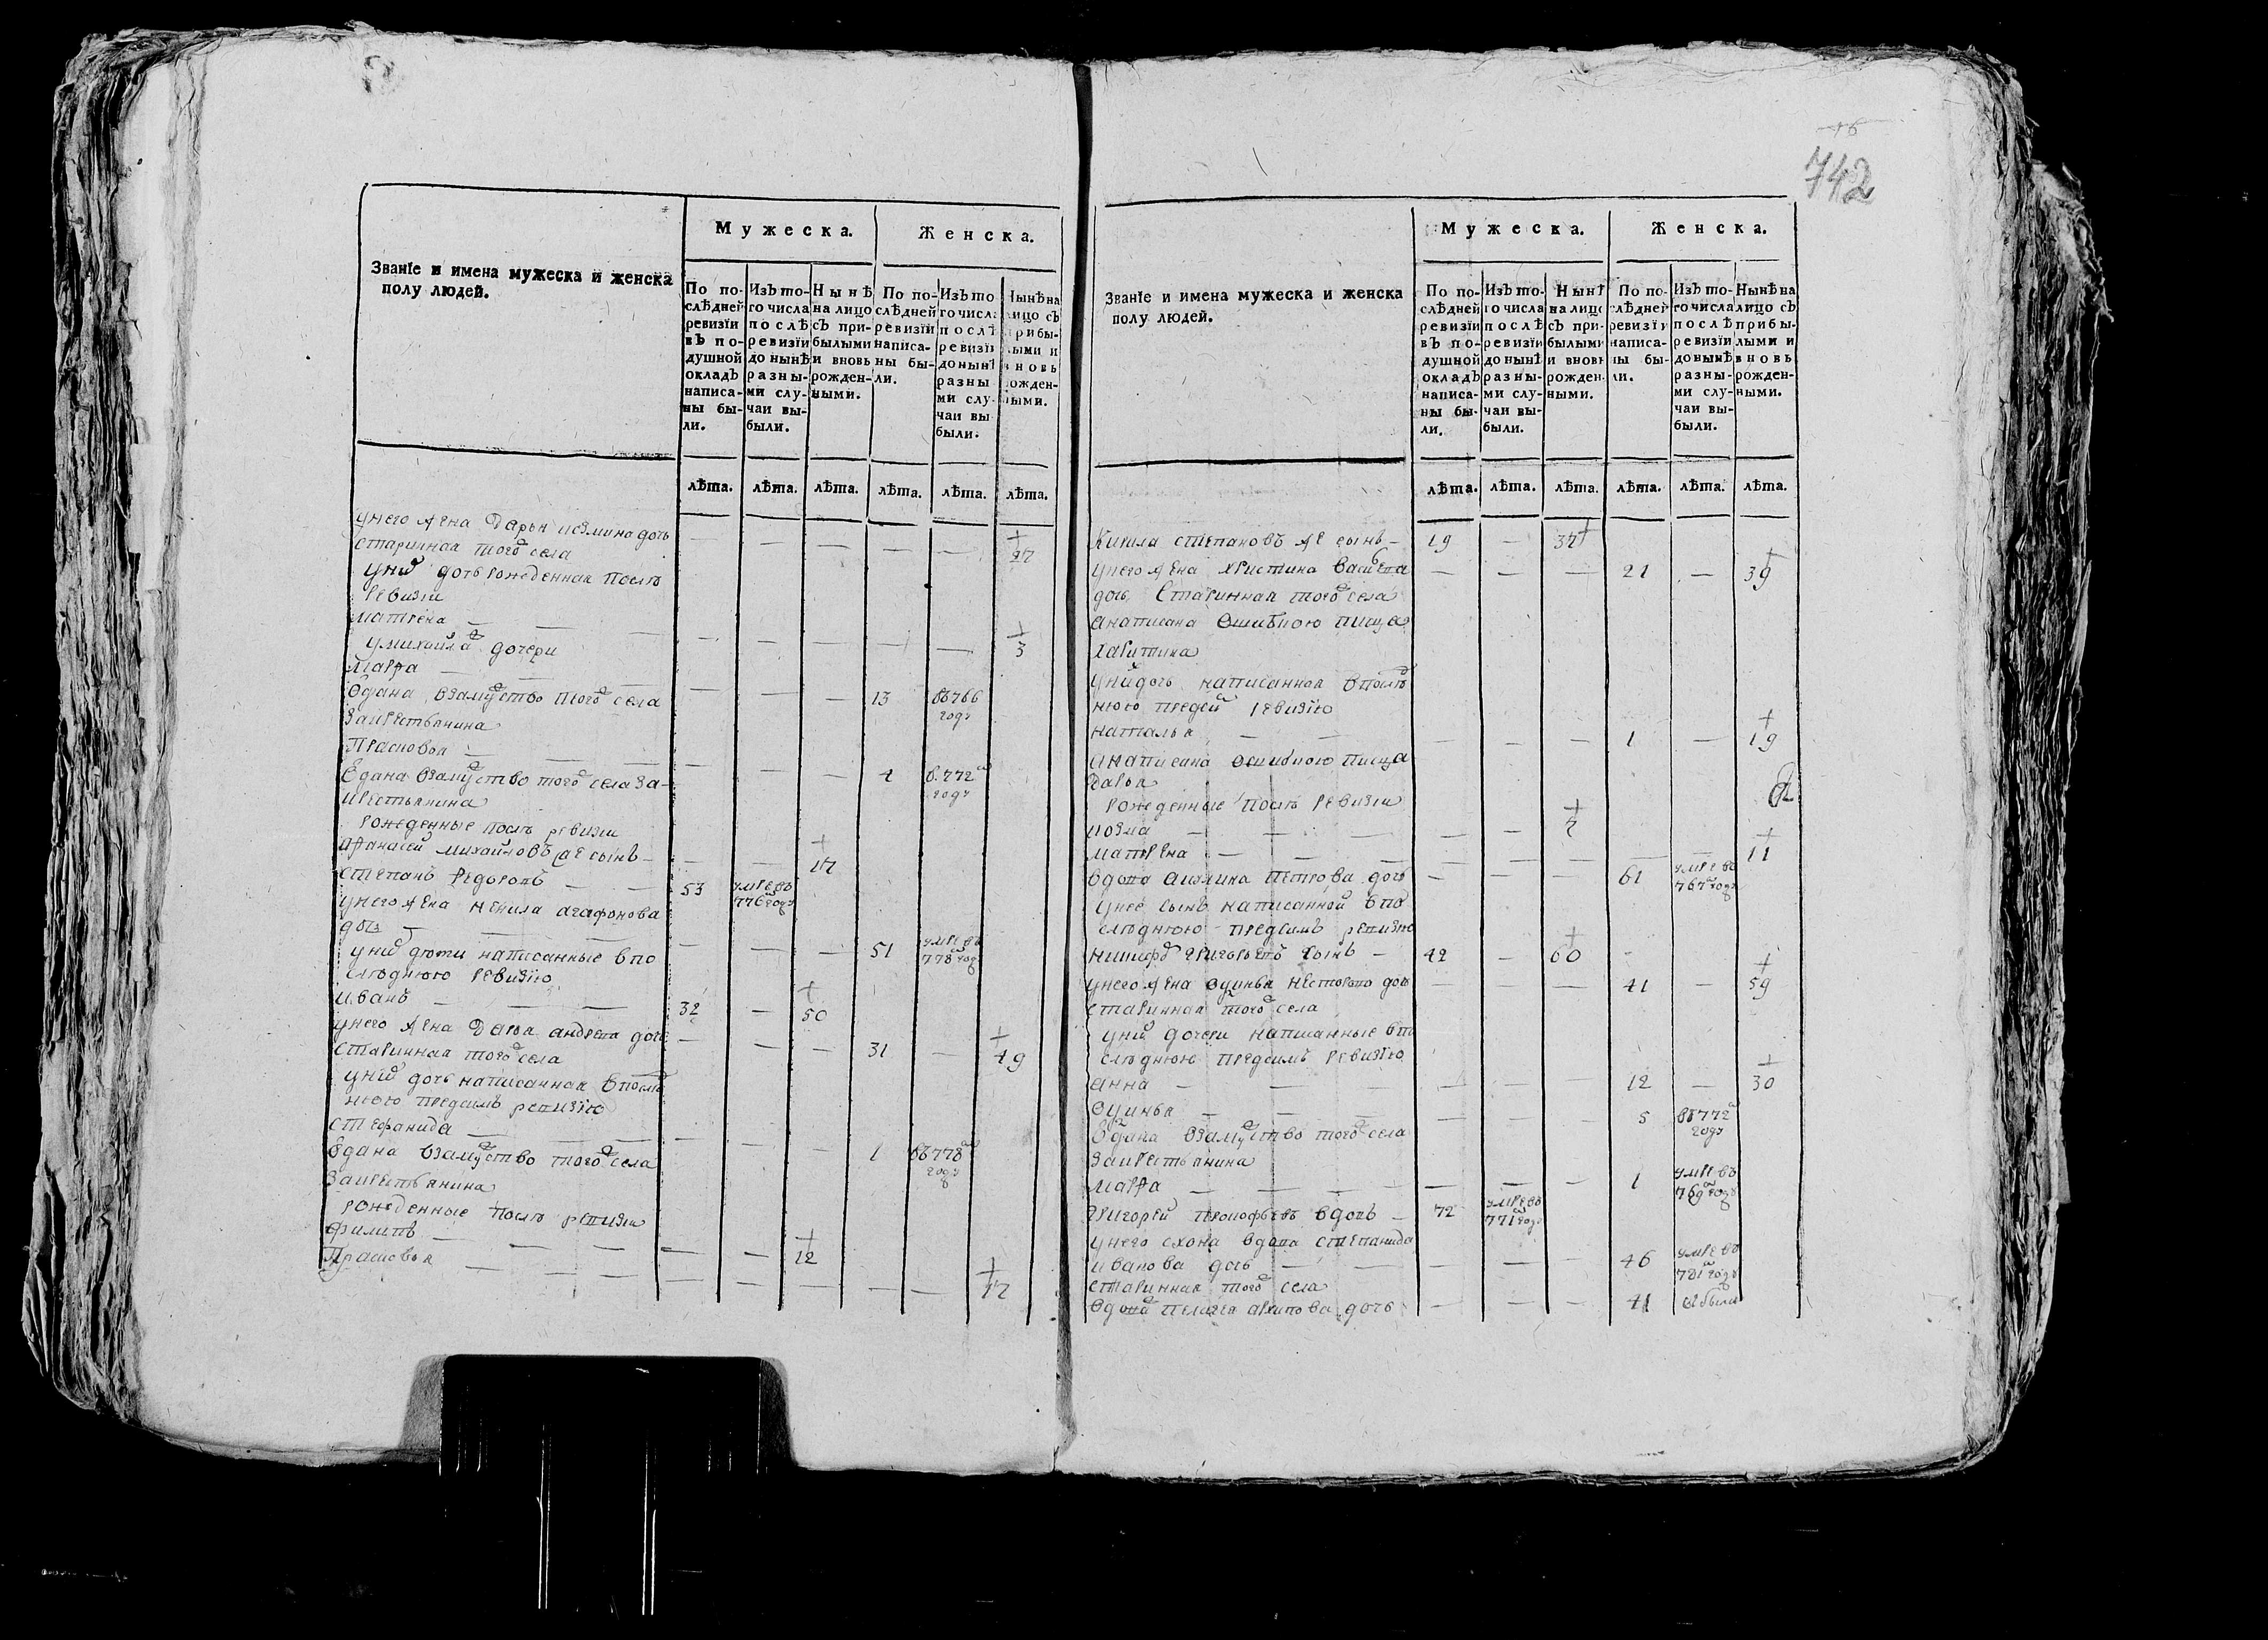 16
742
Мужеска. Женска.
Званїе и имена мужеска и женска
полу людей.
По по-
слѣдней
ревизїи
въ по-
душной
окладъ
написа-
ны бы-
ли.
Изъ то-
го числа
послѣ
ревизїи
до нынѣ
разны-
ми слу-
чаи вы-
были.
Нынѣ
на лицо
съ при-
былыми
и вновь
рожден-
ными.
По по-
слѣдней
ревизїи
написа-
ны бы-
ли.
Изъ то
го числа
послѣ
ревизїи
до нынѣ
разны
ми слу-
чаи вы
были.
Нынѣ на
лицо съ
прибы-
лыми и
вновь
рожден-
ными.
лѣта. лѣта. лѣта. лѣта. лѣта. лѣта.
унего жена Дарья козмина дочь
старинная того села — — — — — 27
уних дочь рожденная послѣ
ревизіи
матрена — — — — — — 3
умихайла дочери
Марфа —
Одана взамуство того села — — — 13 въ766 году
закрестьянина
Прасковья —
Одана взамуство того села за- — — — 4 в.772 году
крестьянина
рожденные послѣ ревизіи
Афанасей михайловъ сынъ — — — 17
степанъ Федоровъ — — 53 умре въ 776 году
унего жена ненила агафонова
дочь — — — — — 51 умре въ 778 году
уних дѣти написанные впо
слѣднюю ревизїю
иванъ — — — 32 — 50
унего жена Дарья андреева дочь — — — 31 — 49
старинная того села
уних дочь написанная впослѣ
нюю предсимъ ревизїю
стефанида — — — — — — 1 въ778 году
Одана взамуство того села
закрестьянина
рожденные послѣ ревизіи
Филипъ — — — — — 12
Прасковья — — — — — — — — 17
Мужеска. Женска.
Званїе и имена мужеска и женска
полу людей.
По по-
слѣдней
ревизїи
въ по-
душной
окладъ
написа-
ны бы-
ли.
Изъ то-
го числа
послѣ
ревизїи
до нынѣ
разны-
ми слу-
чаи вы-
были.
Нынѣ
на лицо
съ при-
былыми
и вновь
рожден-
ными.
По по-
слѣдней
ревизїи
написа-
ны бы-
ли.
Изъ то-
го числа
послѣ
ревизїи
до нынѣ
разны-
ми слу-
чаи вы-
были.
Нынѣ на
лицо съ
прибы-
лыми и
вновь
рожден-
ными.
лѣта. лѣта. лѣта. лѣта. лѣта. лѣта.
Кирила степановъ сынъ — 19 — 37
унего жена христина васильева — — — 21 — 39
дочь старинная того села
анаписана ошибкою писца
харитина
уних дочь написанная впослѣ
нюю предсим ревизїю
наталья — — — — — 1 — 19
анаписана ошибкою писца
дарья
рожденные послѣ ревизіи
козма — — — — — 7
матрена — — — — — — — — 11
вдова акилина Петрова дочь — — — 61 умре въ 767 году
унее сынъ написанной впо
слѣднюю предсимъ ревизїю
никифор григорьевъ сынъ — 42 — 60
унего жена Афимья Нестерова дочь — — — 41 — 59
старинная того села
уних дочери написанные впо
слѣднюю предсимъ ревизїю
анна — — — — — — 12 — 30
Афимья — — — — — 5 въ772 году
Одана взамуство того села
закрестьянина
марфа — — — — — — 1 умре въ 769 году
Григорей прокофьевъ вдовъ — 72 умре въ 771 году
унего сноха вдова степанида
иванова дочь — — — — — 46 умре въ 781 году
старинная того села
вдова пелагея архипова дочь — — — 41